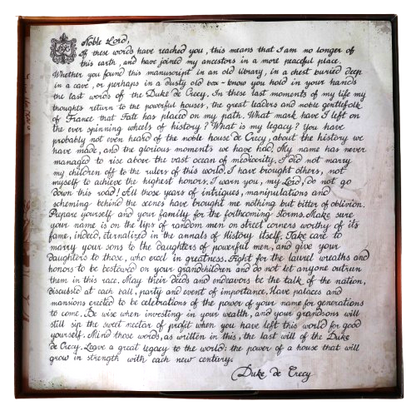 Noble Lord,
If these words have reached you, this means that I am no longer of
this earth, and have joined my ancestors in a more peaceful place.
Whether you found this manuscript in an old library, in a chest buried deep
in a cave, or perhaps in a dusty old box - know you hold in your hands
the last words of the Duke de Crecy. In these last moments of my life my
thoughts return to the powerful houses, the great leaders and noble gentlefolk
of France that Fate has placed on my path. What mark have I left on
the ever spinning wheels of history? What is my legacy? You have
probably not even heard of the noble house de Crecy, about the history we
have made, and the glorious moments we have had. My name has never
managed to rise above the vast ocean of mediocrity. I did not marry
my children off to the rulers of this world. I have brought others, not
myself to achieve the highest honors. I warn you, my Lord, do not go
down this road! All those years of intrigues, manipulations and
scheming behind the scenes have brought me nothing but bitter oblivion.
Prepare yourself and your family for the forthcoming storms. Make sure
your name is on the lips of random men on street corners worthy of its
fame, indeed, eternalized in the annals of History itself. Take care to
marry your sons to the daughters of powerful men, and give your
daughters to those, who excel in greatness. Fight for the laurel wreaths and
honors to be bestowed on your grandchildren and do not let anyone outrun
them in this race. May their deeds and endeavors be the talk of the nation,
discussed at each ball, party and event of importance. Have palaces and
mansions erected to be celebrations of the power of your name for generations
to come. Be wise when investing in your wealth, and your grandsons will
still sip the sweet nectar of profit when you have left this world for good
yourself. Mind those words, as written in this, the last will of the Duke
de Crecy. Leave a great legacy to the world: the power of a house that will
grow in strength with each new century.
Duke de Crecy